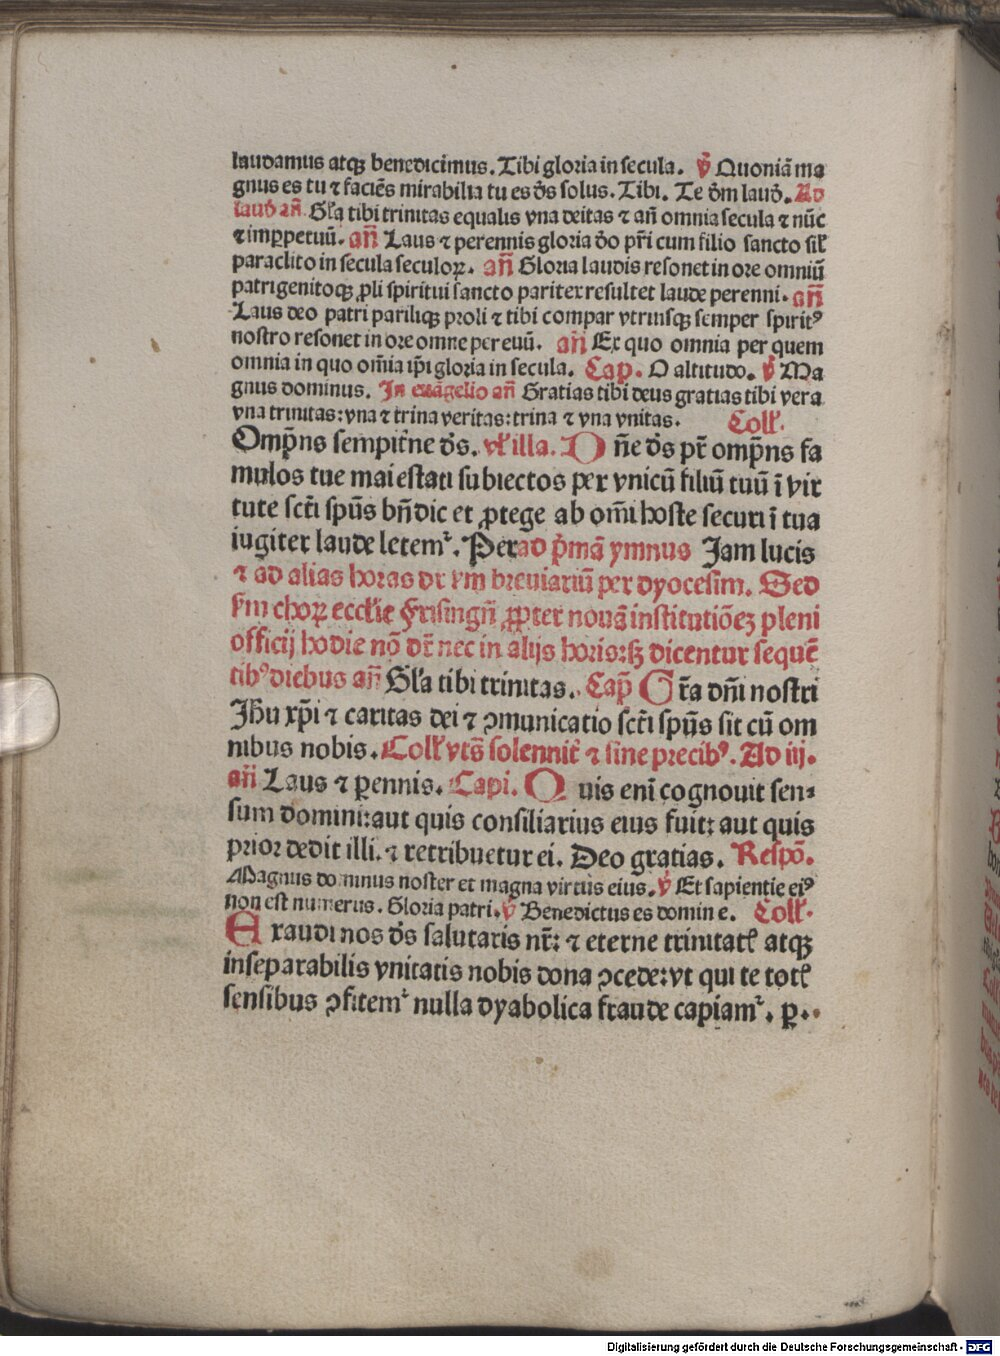 laudamus atqꝫ benedicimus. Tibi gloria in secula. ℣ Quoniā ma
gnus es tu ⁊ faciēs mirabilia tu es ds̄ solus. Tibi. Te dm̄ laud̄. Ad
laud̄ añ. Gl̄a tibi trinitas equalis vna deitas ⁊ añ omnia secula ⁊ nūc
⁊ imꝑpetuū. añ Laus ⁊ perennis gloria dō pr̄i cum filio sancto sil̄
paraclito in secula seculoꝝ. añ Gloria laudis resonet in ore omniū
patri genitoqꝫ ꝓli spiritui sancto pariter resultet laude perenni. añ
Laus deo patri pariliqꝫ proli ⁊ tibi compar vtriusqꝫ semper spiritꝰ
nostro resonet in ore omne per euū. añ Ex quo omnia per quem
omnia in quo om̄ia ip̄i gloria in secula. Cap. O altitudo. ℣ Ma
gnus dominus. In euāgelio añ Gratias tibi deus gratias tibi vera
vna trinitas: vna ⁊ trina veritas: trina ⁊ vna vnitas. Coll̄.
Omp̄ns sempit̄ne ds̄. vl̄ illa. Dn̄e ds̄ pr̄ omp̄ns fa
mulos tue maiestati subiectos per vnicū filiū tuū ī vir
tute sct̄i spūs bn̄dic et ꝓtege ab om̄i hoste securi ī tua
iugiter laude letemᷣ. Per ad p̄mā ymnus Jam lucis
⁊ ad alias horas dr̄ sm̄ breuiariū per dyocesim. Sed
sm̄ choꝝ eccl̄ie Frisingn̄ ꝓpter nouā institutiōeꝫ pleni
officij hodie nō dr̄ nec in alijs horis: sꝫ dicentur sequē
tibꝰ diebus añ Gl̄a tibi trinitas. Cap̄ Gr̄a dn̄i nostri
Jhū xp̄i ⁊ caritas dei ⁊ ꝯmunicatio sct̄i spūs sit cū om
nibus nobis. Coll̄ vts̄ solennit̄ ⁊ sine precibꝰ. Ad iij.
añ Laus ⁊ ꝑennis. Capi. Quis enī cognouit sen⸗
sum domini: aut quis consiliarius eius fuit: aut quis
prior dedit illi. ⁊ retribuetur ei. Deo gratias. Respō.
Magnus dominus noster et magna virtus eius. ℣ Et sapientie eiꝰ
non est numerus. Gloria patri. ℣ Benedictus es domine. Coll̄.
Exaudi nos ds̄ salutaris nr̄: ⁊ eterne trinitatꝭ atqꝫ
inseparabilis vnitatis nobis dona ꝯcede: vt qui te totꝭ
sensibus ꝯfitemᷣ nulla dyabolica fraude capiamᷣ. ꝑ.
Digitalisierung gefördert durch die Deutsche Forschungsgemeinschaft - DFG